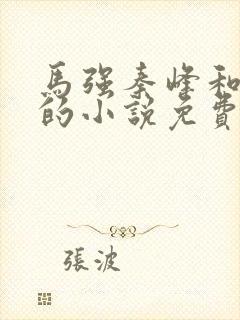 馬強秦峰和
的小説免費
張波